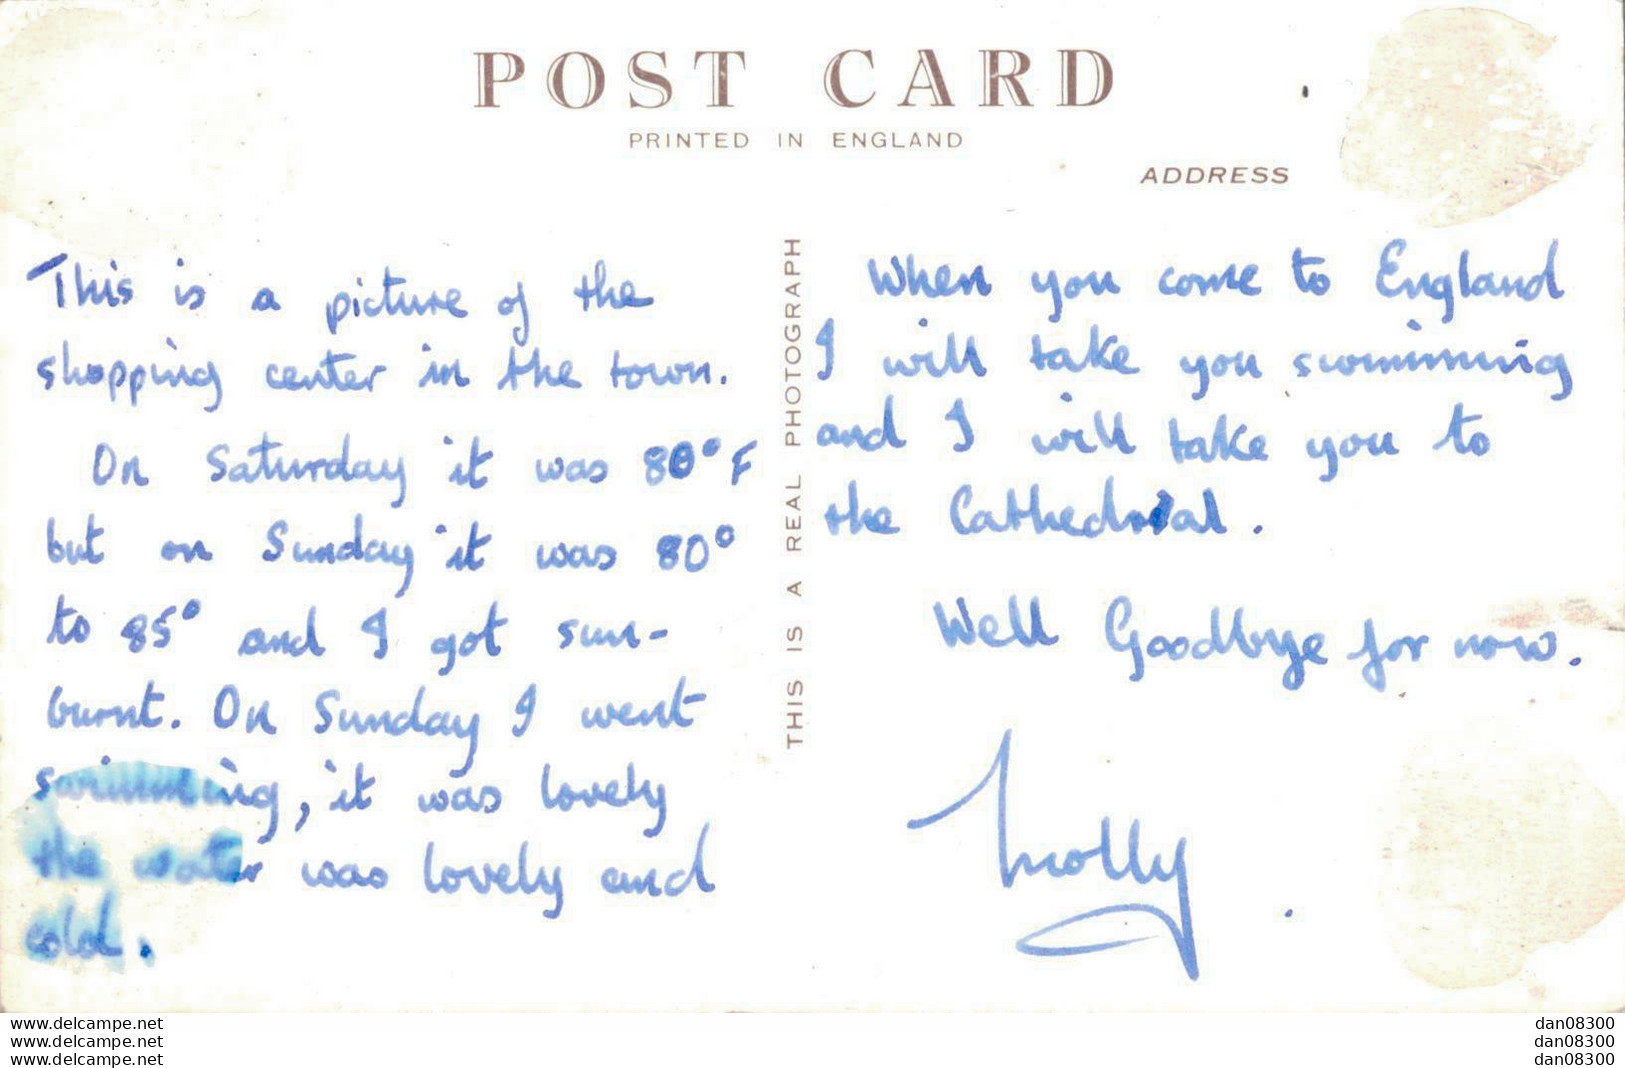 POST CARD
PRINTED IN ENGLAND
ADDRESS
This is a picture of the
shopping center in the town.
On Saturday it was 80° F
but on Sunday it was 80°
to 85° and I got sun-
burnt. On Sunday I went
swimming, it was lovely
the water was lovely and
cold.
THIS IS A REAL PHOTOGRAPH
When you come to England
I will take you swimming
and I will take you to
the Cathedral.
Well Goodbye for now.
Molly
www.delcampe.net
www.delcampe.net
www.delcampe.net
dan08300
dan08300
dan08300